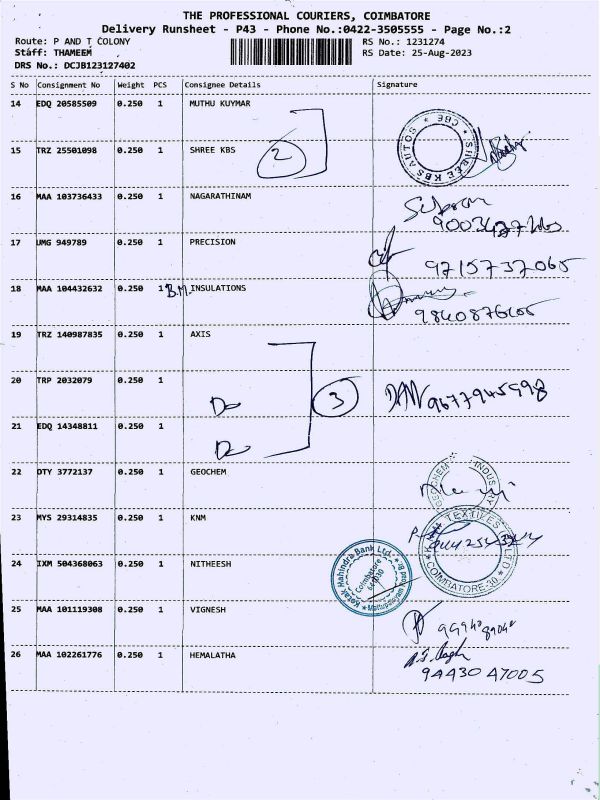 THE PROFESSIONAL COURIERS, COIMBATORE
Delivery Runsheet - P43 - Phone No.:0422-3505555 - Page No.:2
Route: P AND T COLONY RS No.: 1231274
Staff: THAMEEM RS Date: 25-Aug-2023
DRS No.: DCJB123127402
S No Consignment No Weight PCS Consignee Details Signature
14 EDQ 20585509 0.250 1 MUTHU KUYMAR
15 TRZ 25501098 0.250 1 SHREE KBS 2 SHREE KBS AUTOS * CBE *
16 MAA 103736433 0.250 1 NAGARATHINAM
17 UMG 949789 0.250 1 PRECISION 9715737065
18 MAA 104432632 0.250 1 B.M. INSULATIONS
19 TRZ 140987835 0.250 1 AXIS
20 TRP 2032079 0.250 1 Do 3 9677945998
21 EDQ 14348811 0.250 1 Do
22 DTY 3772137 0.250 1 GEOCHEM GEOCHEM INDUSTRY
23 MYS 29314835 0.250 1 KNM TEXTILES (P) LTD COIMBATORE-30
24 IXM 504368063 0.250 1 NITHEESH Kotak Mahindra Bank Ltd. Coimbatore 641030 Mettupalayam Road Br.
25 MAA 101119308 0.250 1 VIGNESH
26 MAA 102261776 0.250 1 HEMALATHA
9443047005